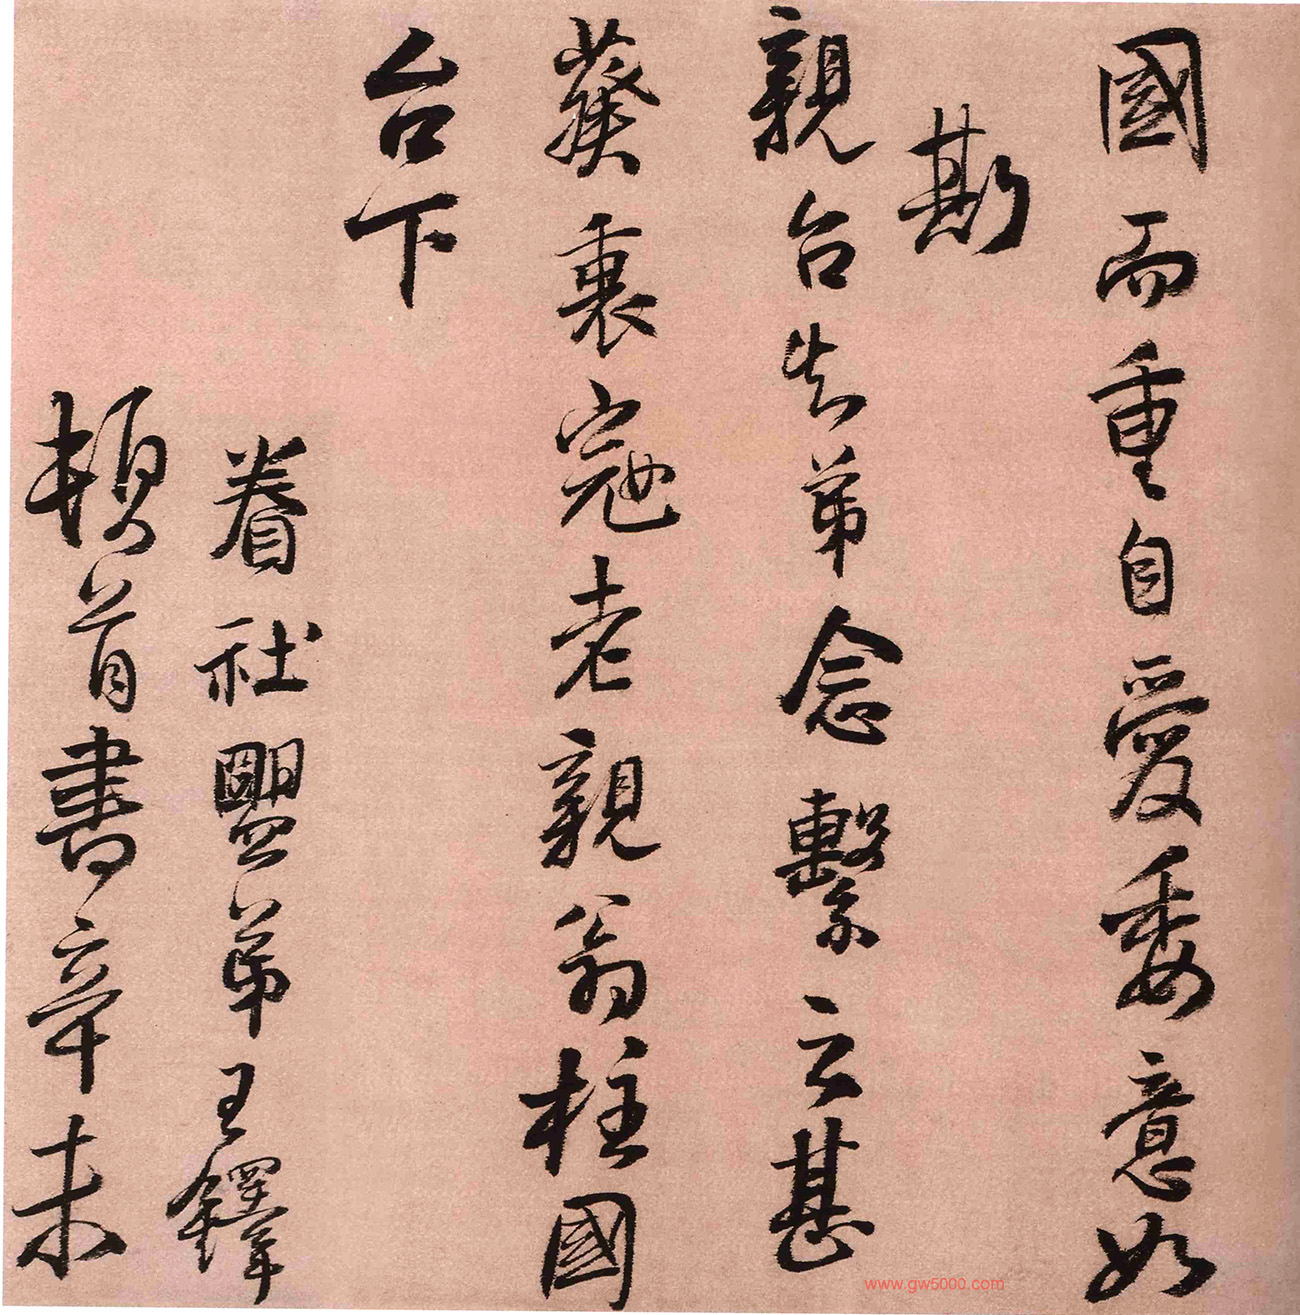 國而重自愛委意如
斯
親台告弟念繫云甚
葵衷寇老親翁柱國
台下
眷社盟弟王鐸
頓首書辛未
www.gw5000.com